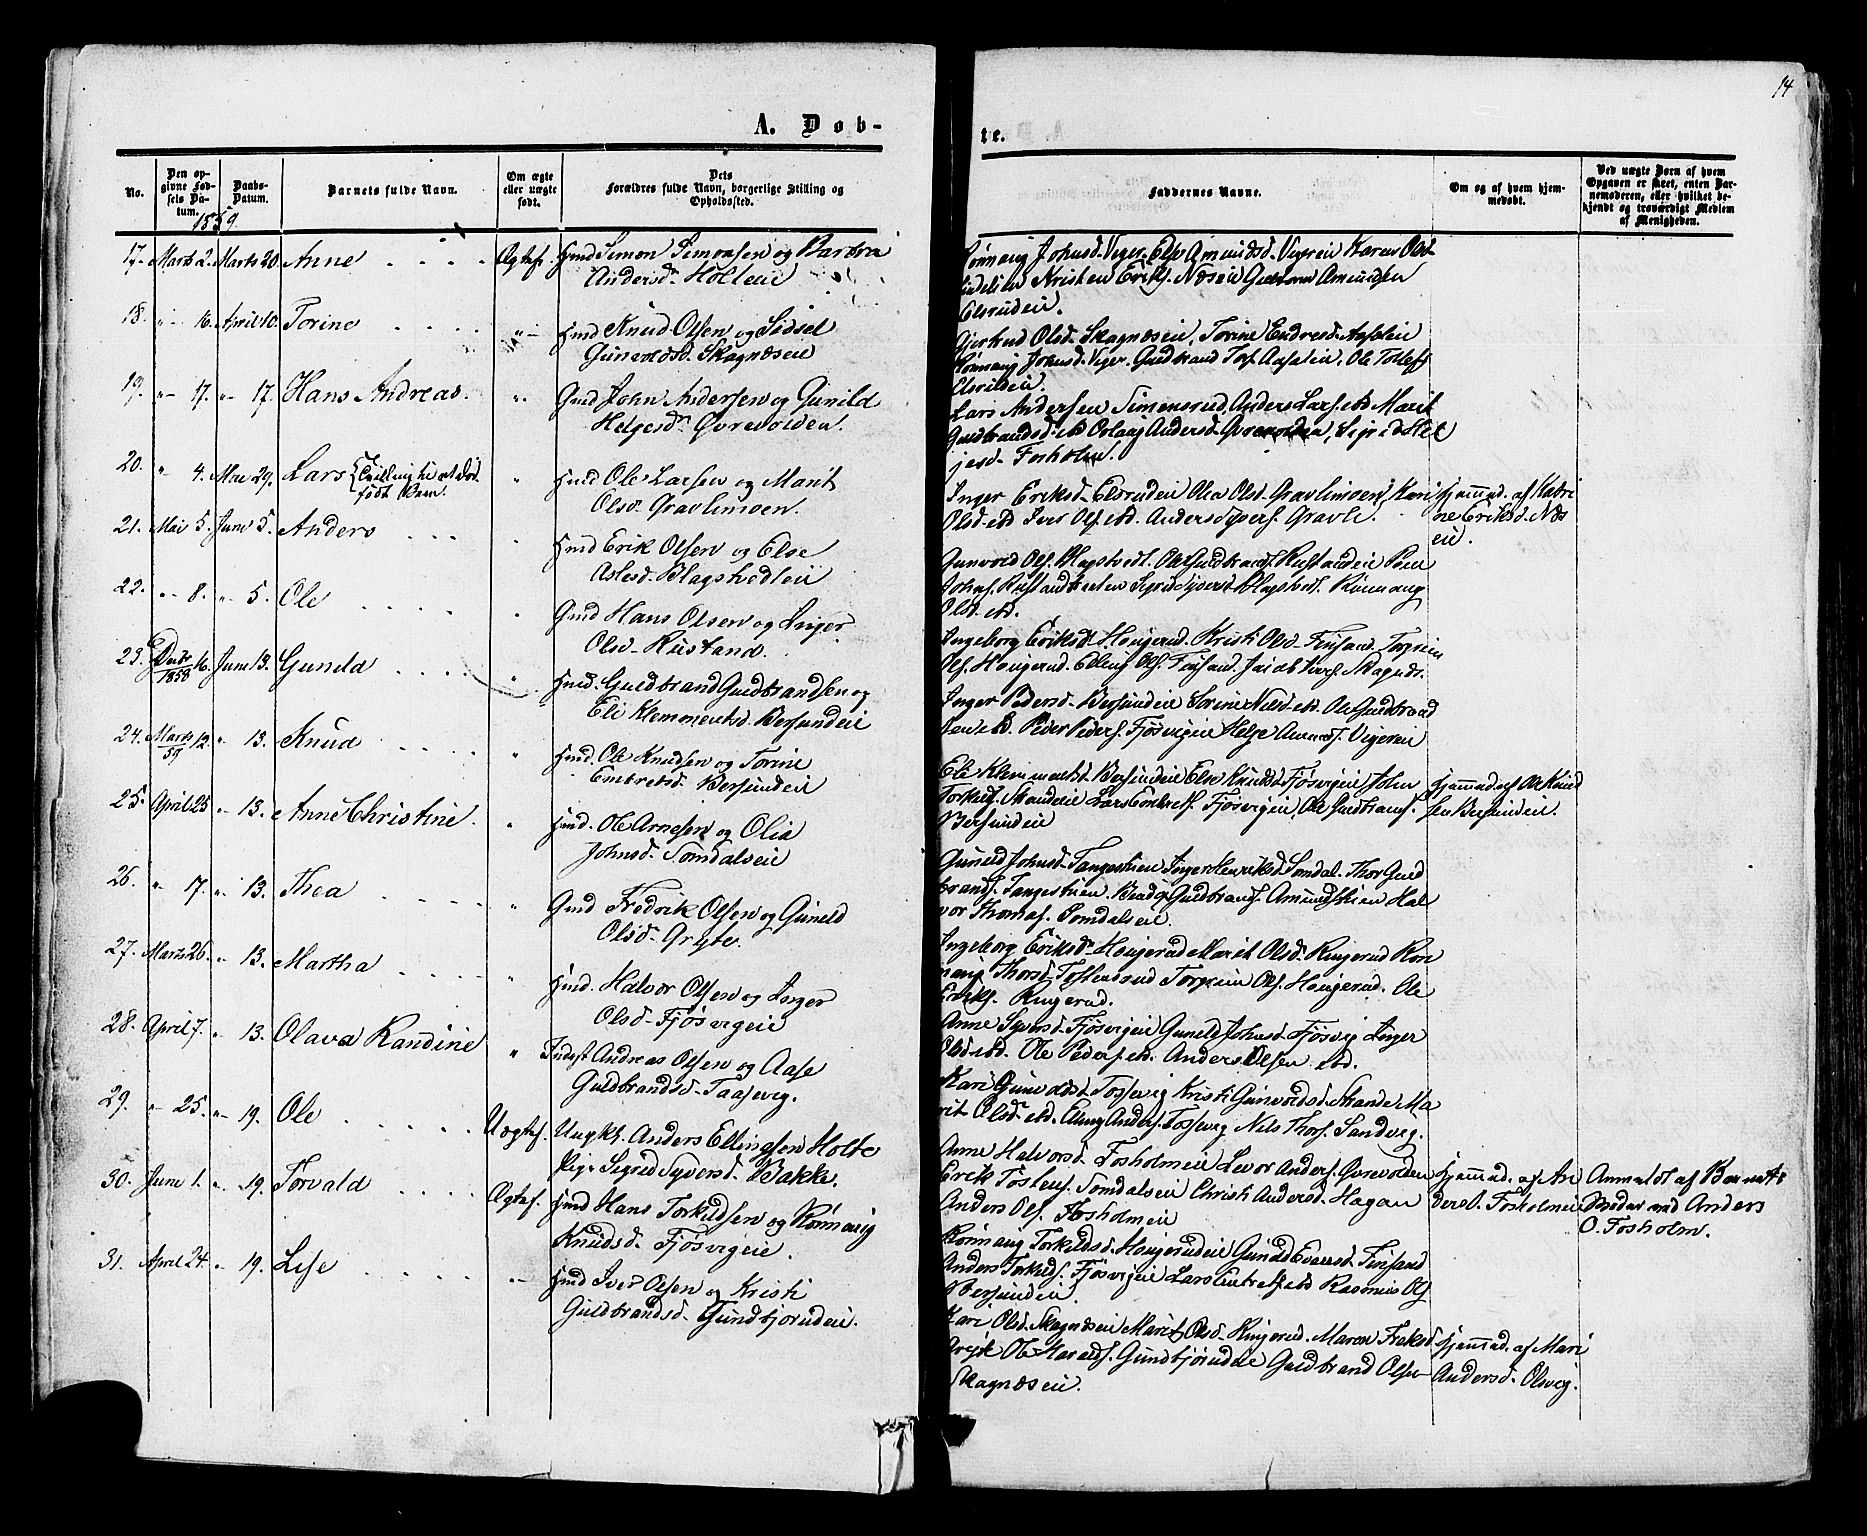 14
A. Døb-
te.
No.
Den op-
givne Fød-
sels Da-
tum.
Daabs-
Datum.
Barnets fulde Navn.
Om ægte
eller uægte
født.
Dets
Forældres fulde Navn, borgerlige Stilling og
Opholdssted.
Faddernes Navne.
Om og af hvem hjem-
medøbt.
Ved uægte Børn af hvem
Opgaven er skeet, enten Bar-
nemoderen, eller hvilket be-
kjendt og troværdigt Medlem
af Menigheden.
1859.
17. Marts 2. Marts 20. Anne Ægtef. Hmd Simon Simonsen og Barbra
Andersd. Holteie
Rønnaug Johnsd. Viger. Else Amundsd. Vigereie Karen Ols-
Kristen Eriks. Næseie Amundsen
Elsrudeie.
18. " 16. April 10. Torine " Hmd Knud Olsen og Sidsel
Gunvoldsd. Skagnæseie
Gjertrud Olsd. Skagnæseie, Torine Endresd. Aasleie
Rønnaug Johnsd. Viger. Guldbrand Tors. Aasleie, Ole Tollefs
Elsrudeie.
19. " 17. " 17. Hans Andreas. " Gmd John Andersen og Gunild
Helgesd. Øvrevolden.
Lars Andersen Simensrud, Anders Lars. ibd Marit
Guldbrandsd. ibd Oslaug Andersd. Øvrevolden, Sigrid Hel
jesd. Fosholm.
20. " 4. Mai 29. Lars {Tvilling til et død-
født Barn. " Hmd Ole Larsen og Marit
Olsd. Gravlimoen.
Inger Eriksd. Elsrudeie Olea Olsd. Gravlimoen, Kari
Olsd. ibd Iver Ols. ibd. Anders Ivers. Gravli.
Hjemmd. af Katri
ne Eriksd. Næs
eie.
21. Mai 5. Juni 5. Anders " Hmd Erik Olsen og Else
Aslesd. Blagstvedteie
Gunvold Ols. Blagstvedt. Ole Guldbrands. Rustandeie Peer
Johns. Rustandbraaten Sigrid Syversd. Blagstvedt. Rønnaug
Olsd. ibd.
22. " 8. " 5. Ole " Gmd Hans Olsen og Inger
Olsd. Rustand.
Ingeborg Eriksd. Hougerud. Kristi Olsd. Finsand. Torgrim
Ols. Hougerud. Elling Ols. Finsand. Ivers. Skagnæs.
23. Decbr 16. 1858 Juni 13. Gunda " Hmd. Guldbrand Guldbrandsen og
Eli Klemmentsd. Bersundeie
Inger Pedersd. Bersundeie Torine Nilsd. ibd. Ole Guldbrand
sen ibd. Peder Peders. Fjøsvigeie Helge Amunds. Vigereie
24. Marts 12. 59 " 13. Knud " Hmd. Ole Knudsen og Torine
Embretsd. Bersundeie
Eli Klemmentsd. Bersundeie Else Knudsd. Fjøsvigeie John
Torkilds. Skandeie Lars Embrets. Fjøsvigeie, Ole Guldbrands.
Bersundeie
Hjemmd. af Ole Knud
sen Bersundeie.
25. April 25 " 13. Anne Christine. " Hmd. Ole Arnesen og Olia
Johnsd. Somdalseie
Gunild Johnsd. Tangestien Inger Henriksd. Somdal. Thor Guld
brands. Tangestien. Guldbrands. Hal
vor Thomas. Somdalseie.
26. " 17. " 13. Thea " Gmd Fredrik Olsen og Gunild
Olsd. Gryte.
Ingeborg Eriksd. Hougerud Marit Olsd. Ringerud Røn
naug Thorsd. Tostensrud Torgrim Ols. Hougerud. Ole
Eriks. Ringerud.
27. Marts 26. " 13. Martha " Hmd. Halvor Olsen og Inger
Olsd. Fjøsvigeie
Anne Syversd. Fjøsvigeie Gunild Johnsd. Fjøsvig Inger
Olsd. ibd. Ole Peders. ibd. Anders Olsen ibd.
28. April 7. " 13. Olava Randine " Indest Andreas Olsen og Aase
Guldbrandsd. Taasevig.
Kari Gunvoldsd. Tossevig Kristi Gunvoldsd. Skande Ma
rit Olsd. ibd. Elling Anders. Tossevig Nils Thors. Sandvig.
29. " 25. " 19. Ole Uægtef. Ungk. Anders Ellingsen Holte
Pige Sigrid Syversd. Bakke.
Anne Halvorsd. Fosholmeie Levor Anders. Øvrevolden
Erik Tostens. Somdalseie Christi Andersd. Hagan
Anders Ols. Fosholmeie
Hjemmd. af An
ders O. Fosholmeie
Anmeldt af Barnets
Moder ved Anders
O. Fosholm.
30. Juni 1. " 19. Torvald Ægtef. Hmd Hans Torkildsen og Rønnaug
Knudsd. Fjøsvigeie.
Rønnaug Torkildsd. Hougerudeie Gunild Evensd. Finsand
Anders Torkilds. Fjøsvigeie Lars Embrets. ibd Rasmus Ols
Bersundeie.
31. April 24. " 19. Lise " Hmd Iver Olsen og Kristi
Guldbrandsd. Gundbjørudeie.
Kari Olsd. Skagnæseie Marit Olsd. Ringerud. Maren Freksd
Gryte Ole Haralds. Gundbjørudeie Guldbrand Olsen
Skagnæseie.
Hjemmd. af Mari
Andersd. Olsvig.